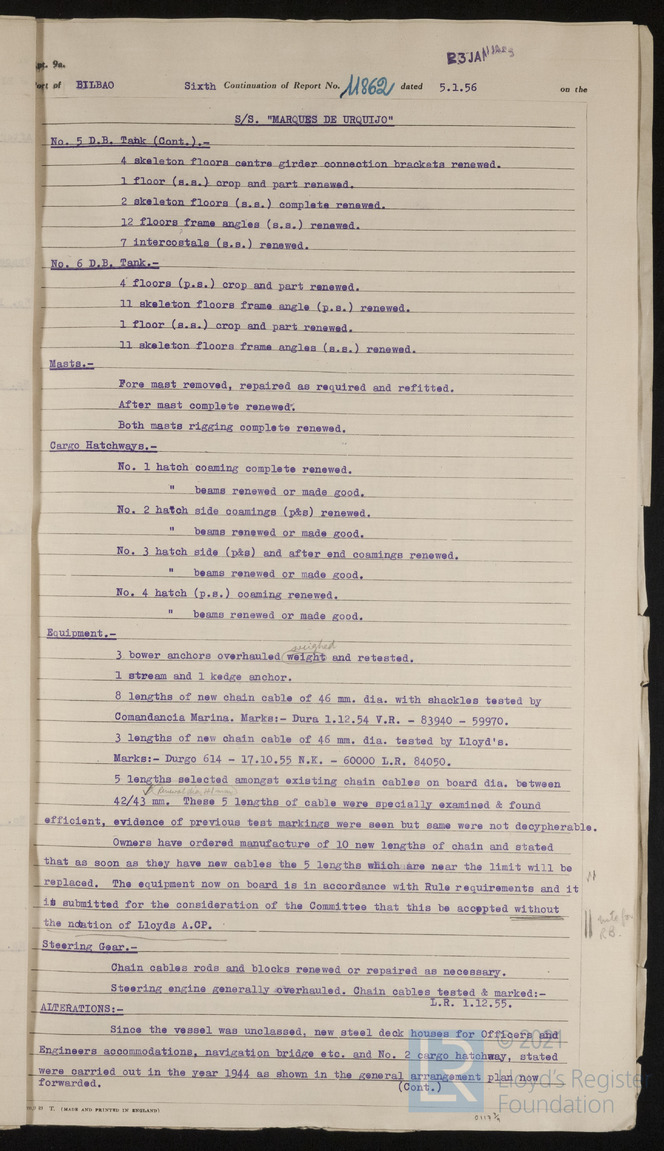 pt. 9a.
23 JAN 1956
ort of BILBAO Sixth Continuation of Report No. 11862 dated 5.1.56 on the
S/S. "MARQUES DE URQUIJO"
No. 5 D.B. Tank (Cont.).-
4 skeleton floors centre girder connection brackets renewed.
1 floor (s.s.) crop and part renewed.
2 skeleton floors (s.s.) complete renewed.
12 floors frame angles (s.s.) renewed.
7 intercostals (s.s.) renewed.
No. 6 D.B. Tank.-
4 floors (p.s.) crop and part renewed.
11 skeleton floors frame angle (p.s.) renewed.
1 floor (s.s.) crop and part renewed.
11 skeleton floors frame angles (s.s.) renewed.
Masts.-
Fore mast removed, repaired as required and refitted.
After mast complete renewed.
Both masts rigging complete renewed.
Cargo Hatchways.-
No. 1 hatch coaming complete renewed.
" beams renewed or made good.
No. 2 hatch side coamings (p&s) renewed.
" beams renewed or made good.
No. 3 hatch side (p&s) and after end coamings renewed.
" beams renewed or made good.
No. 4 hatch (p.s.) coaming renewed.
" beams renewed or made good.
Equipment.-
weighed
3 bower anchors overhauled weight and retested.
1 stream and 1 kedge anchor.
8 lengths of new chain cable of 46 mm. dia. with shackles tested by
Comandancia Marina. Marks:- Dura 1.12.54 V.R. - 83940 - 59970.
3 lengths of new chain cable of 46 mm. dia. tested by Lloyd's.
Marks:- Durgo 614 - 17.10.55 N.K. - 60000 L.R. 84050.
5 lengths selected amongst existing chain cables on board dia. between
42/43 mm. These 5 lengths of cable were specially examined & found
efficient, evidence of previous test markings were seen but same were not decypherable.
Owners have ordered manufacture of 10 new lengths of chain and stated
that as soon as they have new cables the 5 lengths which are near the limit will be
replaced. The equipment now on board is in accordance with Rule requirements and it
is submitted for the consideration of the Committee that this be accepted without
the notation of Lloyds A.CP.
R.B.
Steering Gear.-
Chain cables rods and blocks renewed or repaired as necessary.
Steering engine generally overhauled. Chain cables tested & marked:-
L.R. 1.12.55.
ALTERATIONS:-
Since the vessel was unclassed, new steel deck houses for Officers and
Engineers accommodations, navigation bridge etc. and No. 2 cargo hatchway, stated
were carried out in the year 1944 as shown in the general arrangement plan now
forwarded.
(Cont.)
T. (MADE AND PRINTED IN ENGLAND)
© 2021
Lloyd's Register
Foundation